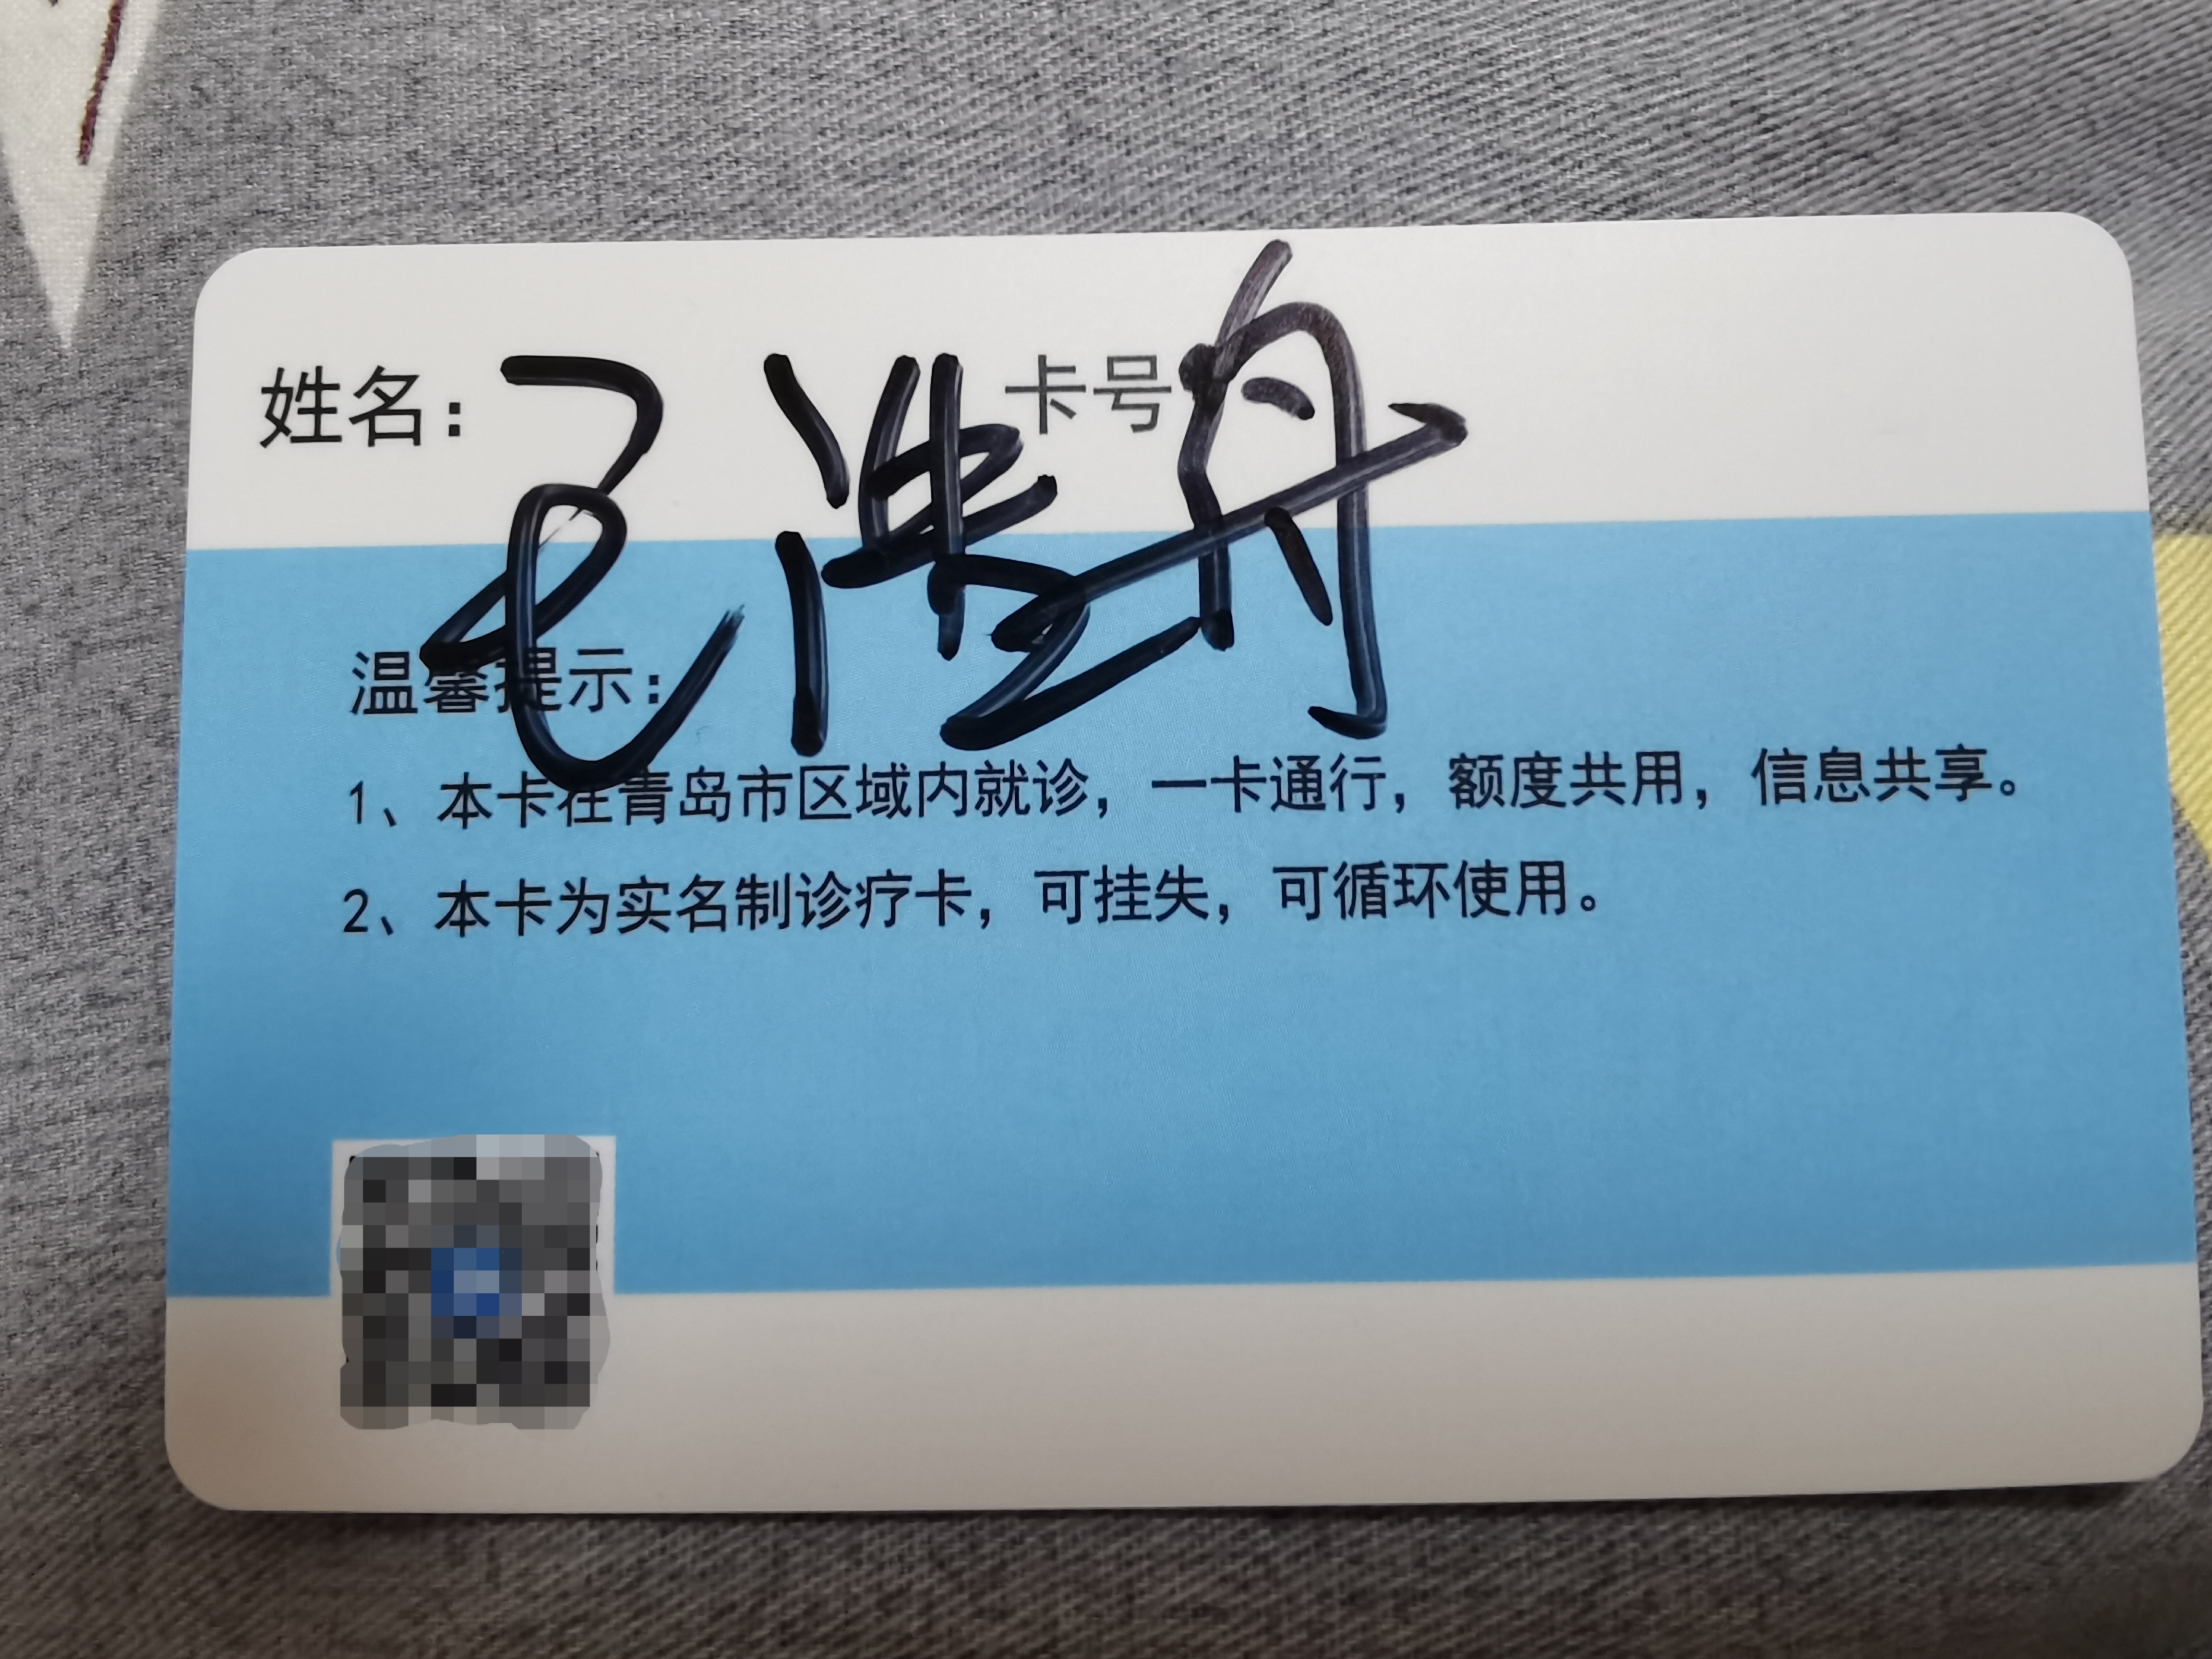 姓名：毛浩舟 卡号
温馨提示：
1、本卡在青岛市区域内就诊，一卡通行，额度共用，信息共享。
2、本卡为实名制诊疗卡，可挂失，可循环使用。